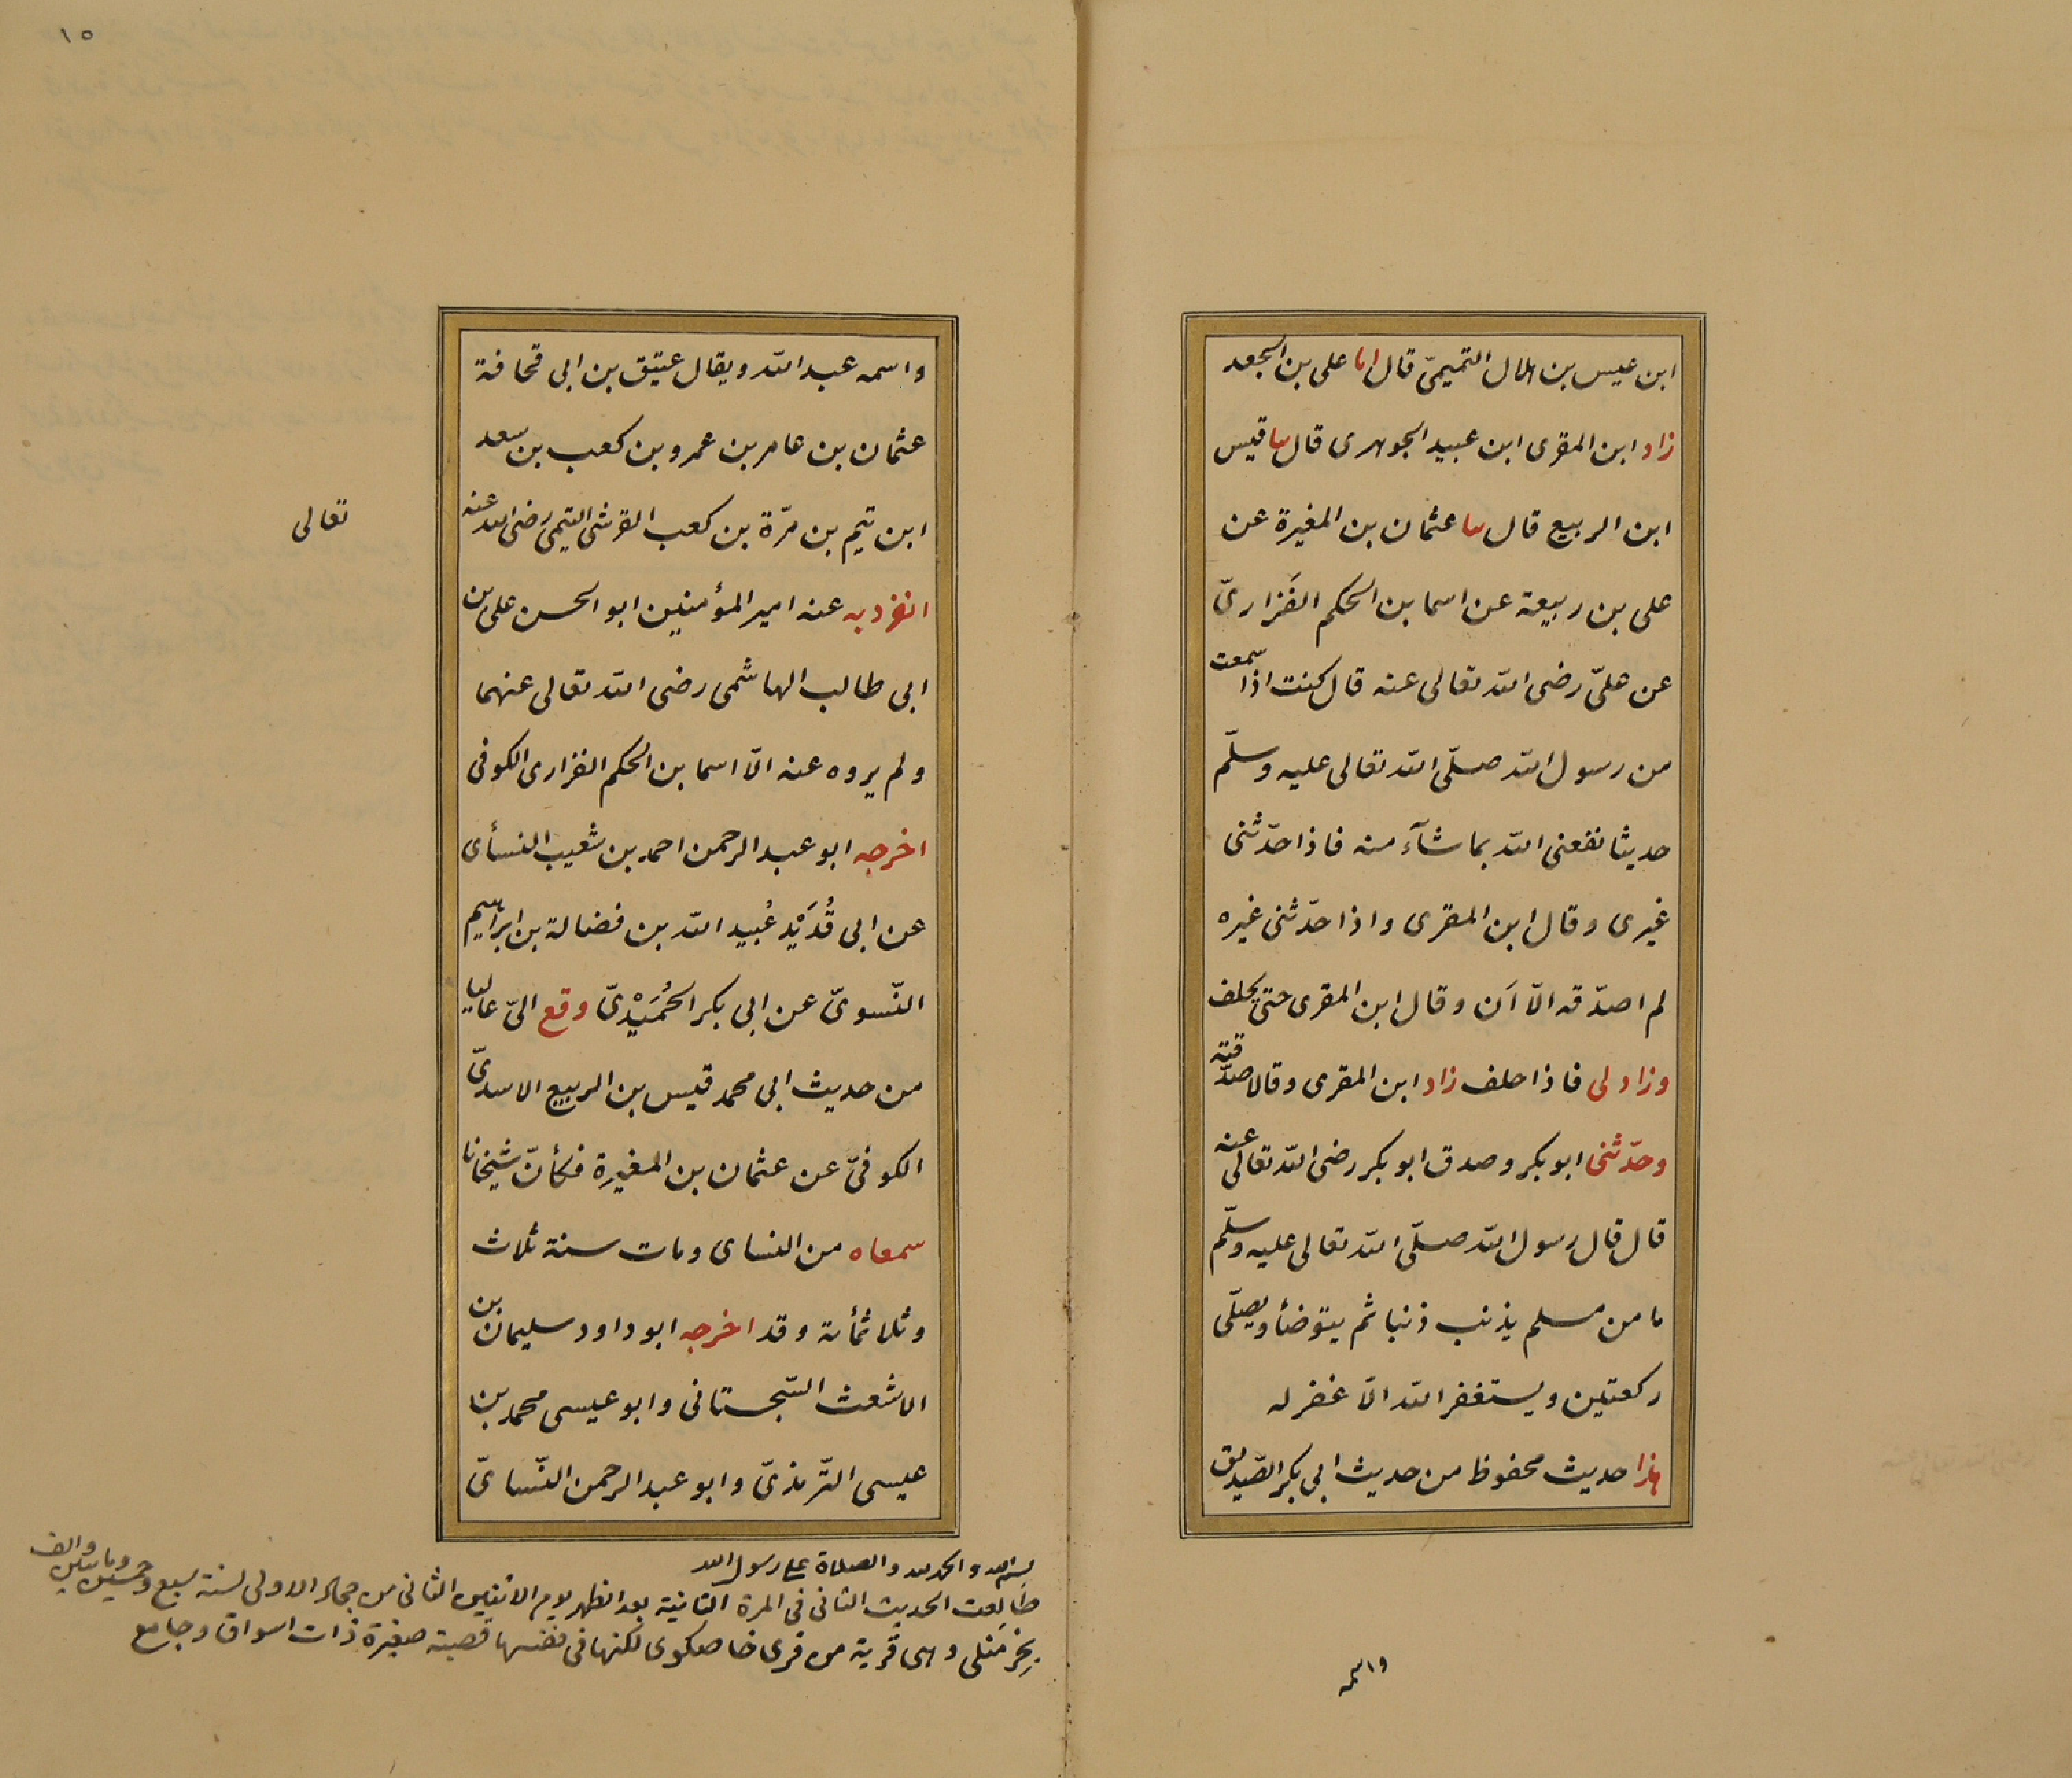 ابن عيس بن هلال التميمىّ قال انا على بن الجعد
زاد ابن المقرى ابن عبيد الجوهرى قال سا قيس
ابن الربيع قال سا عثمان بن المغيرة عن
على بن ربيعة عن اسما بن الحكم الفَزارىّ
عن علىّ رضى الله تعالى عنه قال كنت اذا سمعت
من رسول الله صلّى الله تعالى عليه وسلّم
حديثا نفعنى الله بما شآء منه فاذا حدّثنى
غيرى وقال ابن المقرى واذا حدّثنى غيره
لم اصدّقه الّا اَن وقال ابن المقرى حتى يحلف
وزاد لى فاذا حلف زاد ابن المقرى وقالا صدّقته
وحدّثنى ابو بكر وصدق ابو بكر رضى الله تعالى عنه
قال قال رسول الله صلّى الله تعالى عليه وسلّم
ما من مسلم يذنب ذنبا ثم يتوضأ ويصلّى
ركعتين ويستغفر الله الّا غفر له
هذا حديث محفوظ من حديث ابى بكر الصّديق
واسمه
١٥
واسمه عبد الله ويقال عتيق بن ابى قحافة
عثمان بن عامر بن عمرو بن كعب بن سعد
ابن تيم بن مرّة بن كعب القرشى التيمى رضى الله عنه
تعالى
انفرد به عنه امير المؤمنين ابو الحسن على بن
ابى طالب الهاشمى رضى الله تعالى عنهما
ولم يروه عنه الّا اسما بن الحكم الفزارى الكوفى
اخرجه ابو عبد الرحمن احمد بن شعيب النسأى
عن ابى قُدَيْد عُبيد الله بن فضالة بن ابراهيم
النّسوىّ عن ابى بكر الحُمَيْدىّ وقع الىّ عاليا
من حديث ابى محمد قيس بن الربيع الاسدىّ
الكوفىّ عن عثمان بن المغيرة فكأنّ شيخانا
سمعاه من النساى ومات سنة ثلاث
وثلاثمأىة وقد اخرجه ابو داود سليمان بن
الاشعث السّجستانى وابو عيسى محمد بن
عيسى التّرمذىّ وابو عبد الرحمن النّساىّ
بسم الله والحمد لله والصلاة على رسول الله
طالعت الحديث الثانى فى المرة الثانية بعد الظهر يوم الاثنين الثانى من جماد الاولى لسنة سبع وخمسين ومايتين والف
وهى قرية من قرى خاصكوى لكنها فى نفسها قصبة صغيرة ذات اسواق وجامع